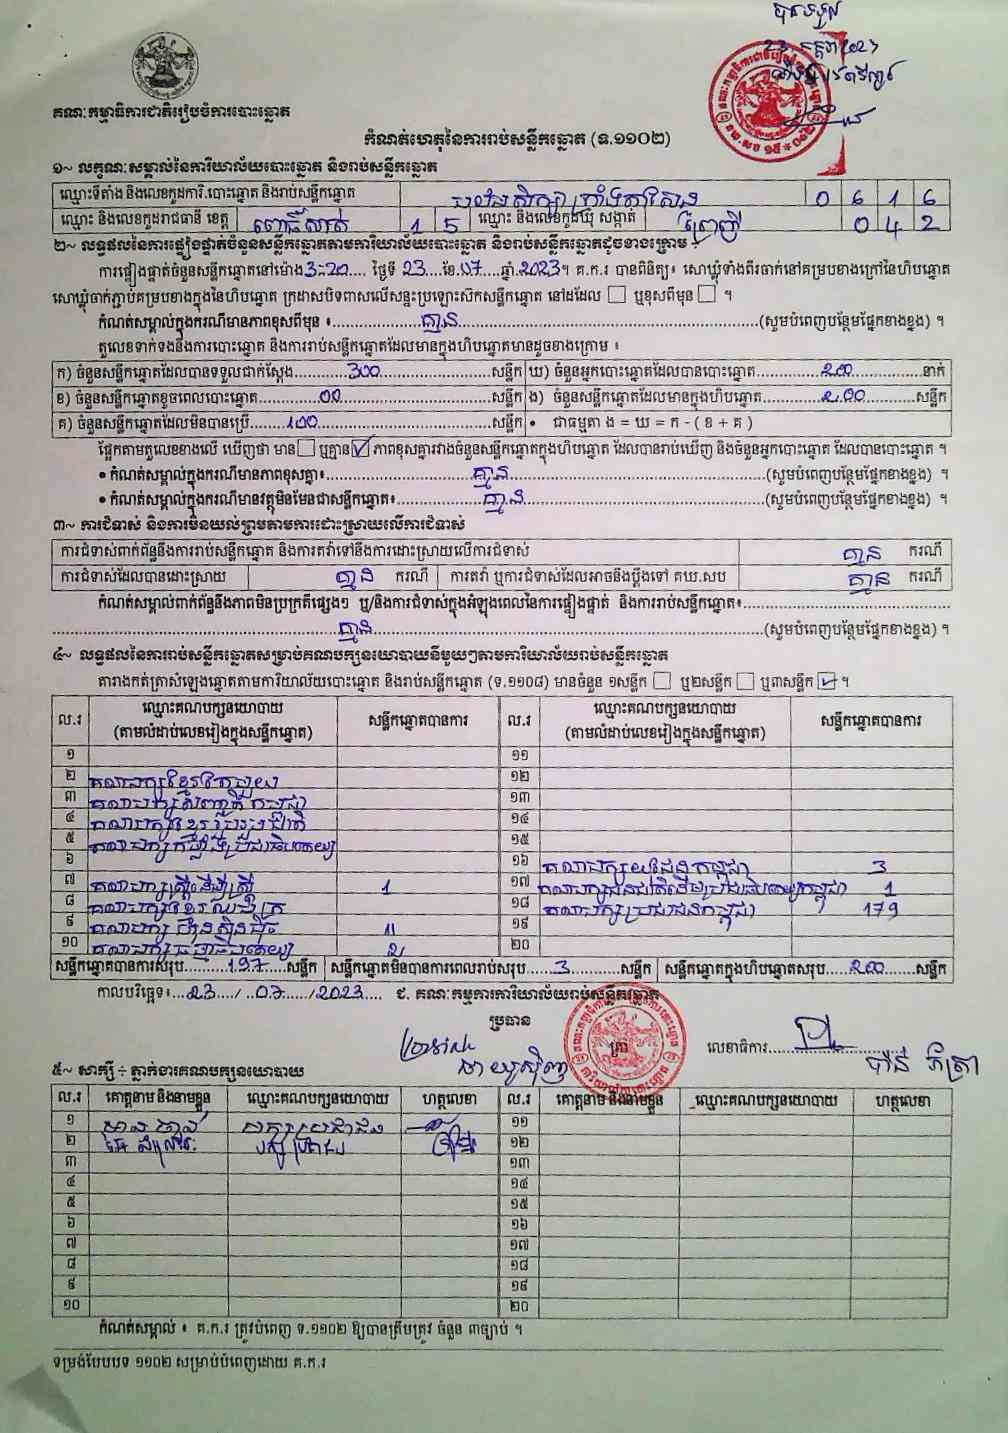 បានទទួល
គណៈកម្មាធិការជាតិរៀបចំការបោះឆ្នោត
កំណត់ហេតុនៃការរាប់សន្លឹកឆ្នោត (ទ.១១០២)
១~ លក្ខណៈសម្គាល់នៃការិយាល័យបោះឆ្នោត និងរាប់សន្លឹកឆ្នោត
ឈ្មោះទីតាំង និងលេខកូដការិ.បោះឆ្នោត និងរាប់សន្លឹកឆ្នោត 0 6 1 6
ឈ្មោះ និងលេខកូដរាជធានី ខេត្ត ពោធិ៍សាត់ 1 5 ឈ្មោះ និងលេខកូដឃុំ សង្កាត់ ព្រៃញី 0 4 2
២~ លទ្ធផលនៃការផ្ទៀងផ្ទាត់ចំនួនសន្លឹកឆ្នោតតាមការិយាល័យបោះឆ្នោត និងរាប់សន្លឹកឆ្នោតដូចខាងក្រោម ៖
ការផ្ទៀងផ្ទាត់ចំនួនសន្លឹកឆ្នោតនៅម៉ោង 3:20 ថ្ងៃទី 23 ខែ 07 ឆ្នាំ 2023។ គ.ក.រ បានពិនិត្យ៖ សោឃ្លុំទាំងពីរចាក់នៅគម្របខាងក្រៅនៃហិបឆ្នោត
សោឃ្លុំចាក់ភ្ជាប់គម្របខាងក្នុងនៃហិបឆ្នោត ក្រដាសបិទពាសលើសន្ទះប្រឡោះស៊កសន្លឹកឆ្នោត នៅដដែល ☐ ឬខុសពីមុន ☐ ។
កំណត់សម្គាល់ក្នុងករណីមានភាពខុសពីមុន ៖ គ្មាន (សូមបំពេញបន្ថែមផ្នែកខាងខ្នង) ។
តួលេខទាក់ទងនឹងការបោះឆ្នោត និងការរាប់សន្លឹកឆ្នោតដែលមានក្នុងហិបឆ្នោតមានដូចខាងក្រោម ៖
ក) ចំនួនសន្លឹកឆ្នោតដែលបានទទួលជាក់ស្តែង 300 សន្លឹក ឃ) ចំនួនអ្នកបោះឆ្នោតដែលបានបោះឆ្នោត 200 នាក់
ខ) ចំនួនសន្លឹកឆ្នោតខូចពេលបោះឆ្នោត 00 សន្លឹក ង) ចំនួនសន្លឹកឆ្នោតដែលមានក្នុងហិបឆ្នោត 200 សន្លឹក
គ) ចំនួនសន្លឹកឆ្នោតដែលមិនបានប្រើ 100 សន្លឹក • ជាធម្មតា ង = ឃ = ក - ( ខ + គ )
ផ្អែកតាមតួលេខខាងលើ ឃើញថា មាន ☐ ឬគ្មាន ☑ ភាពខុសគ្នារវាងចំនួនសន្លឹកឆ្នោតក្នុងហិបឆ្នោត ដែលបានរាប់ឃើញ និងចំនួនអ្នកបោះឆ្នោត ដែលបានបោះឆ្នោត ។
• កំណត់សម្គាល់ក្នុងករណីមានភាពខុសគ្នា៖ គ្មាន (សូមបំពេញបន្ថែមផ្នែកខាងខ្នង) ។
• កំណត់សម្គាល់ក្នុងករណីមានវត្ថុមិនមែនជាសន្លឹកឆ្នោត៖ គ្មាន (សូមបំពេញបន្ថែមផ្នែកខាងខ្នង) ។
៣~ ការជំទាស់ និងការមិនយល់ព្រមតាមការដោះស្រាយលើការជំទាស់
ការជំទាស់ពាក់ព័ន្ធនឹងការរាប់សន្លឹកឆ្នោត និងការតវ៉ាទៅនឹងការដោះស្រាយលើការជំទាស់ គ្មាន ករណី
ការជំទាស់ដែលបានដោះស្រាយ គ្មាន ករណី ការតវ៉ា ឬការជំទាស់ដែលអាចនឹងប្តឹងទៅ គឃ.សប គ្មាន ករណី
កំណត់សម្គាល់ពាក់ព័ន្ធនឹងភាពមិនប្រក្រតីផ្សេងៗ ឬ/និងការជំទាស់ក្នុងអំឡុងពេលនៃការផ្ទៀងផ្ទាត់ និងការរាប់សន្លឹកឆ្នោត៖
គ្មាន (សូមបំពេញបន្ថែមផ្នែកខាងខ្នង) ។
៤~ លទ្ធផលនៃការរាប់សន្លឹកឆ្នោតសម្រាប់គណបក្សនយោបាយនីមួយៗតាមការិយាល័យរាប់សន្លឹកឆ្នោត
តារាងកត់ត្រាសំឡេងឆ្នោតតាមការិយាល័យបោះឆ្នោត និងរាប់សន្លឹកឆ្នោត (ទ.១១០៨) មានចំនួន ១សន្លឹក ☐ ឬ២សន្លឹក ☐ ឬ៣សន្លឹក ☑ ។
ល.រ ឈ្មោះគណបក្សនយោបាយ (តាមលំដាប់លេខរៀងក្នុងសន្លឹកឆ្នោត) សន្លឹកឆ្នោតបានការ ល.រ ឈ្មោះគណបក្សនយោបាយ (តាមលំដាប់លេខរៀងក្នុងសន្លឹកឆ្នោត) សន្លឹកឆ្នោតបានការ
១ ១១
២ គណបក្សខ្មែរតែមួយ ១២
៣ គណបក្ស កម្ពុជា ១៣
៤ គណបក្សខ្មែររួបរួមជាតិ ១៤
៥ គណបក្សកម្លាំងប្រជាធិបតេយ្យ ១៥
៦ ១៦ គណបក្សយុវជនកម្ពុជា 3
៧ គណបក្សស្ត្រីដើម្បីស្ត្រី 1 ១៧ គណបក្សជនជាតិដើមប្រជាធិបតេយ្យកម្ពុជា 1
៨ គណបក្សខ្មែរ ១៨ គណបក្សប្រជាជនកម្ពុជា 179
៩ គណបក្ស ហ៊្វុនស៊ិនប៉ិច 11 ១៩
១០ គណបក្ស ធម្មាធិបតេយ្យ 2 ២០
សន្លឹកឆ្នោតបានការសរុប 197 សន្លឹក សន្លឹកឆ្នោតមិនបានការពេលរាប់សរុប 3 សន្លឹក សន្លឹកឆ្នោតក្នុងហិបឆ្នោតសរុប 200 សន្លឹក
កាលបរិច្ឆេទ៖ 23 / 07 / 2023 ជ. គណៈកម្មការការិយាល័យរាប់សន្លឹកឆ្នោត
ប្រធាន
ត្រា លេខាធិការ
៥~ សាក្សី ÷ ភ្នាក់ងារគណបក្សនយោបាយ
ល.រ គោត្តនាម និងនាមខ្លួន ឈ្មោះគណបក្សនយោបាយ ហត្ថលេខា ល.រ គោត្តនាម និងនាមខ្លួន ឈ្មោះគណបក្សនយោបាយ ហត្ថលេខា
១ បក្សប្រជាជន ១១
២ ១២
៣ ១៣
៤ ១៤
៥ ១៥
៦ ១៦
៧ ១៧
៨ ១៨
៩ ១៩
១០ ២០
កំណត់សម្គាល់ ៖ គ.ក.រ ត្រូវបំពេញ ទ.១១០២ ឱ្យបានត្រឹមត្រូវ ចំនួន ៣ច្បាប់ ។
ទម្រង់បែបបទ ១១០២ សម្រាប់បំពេញដោយ គ.ក.រ